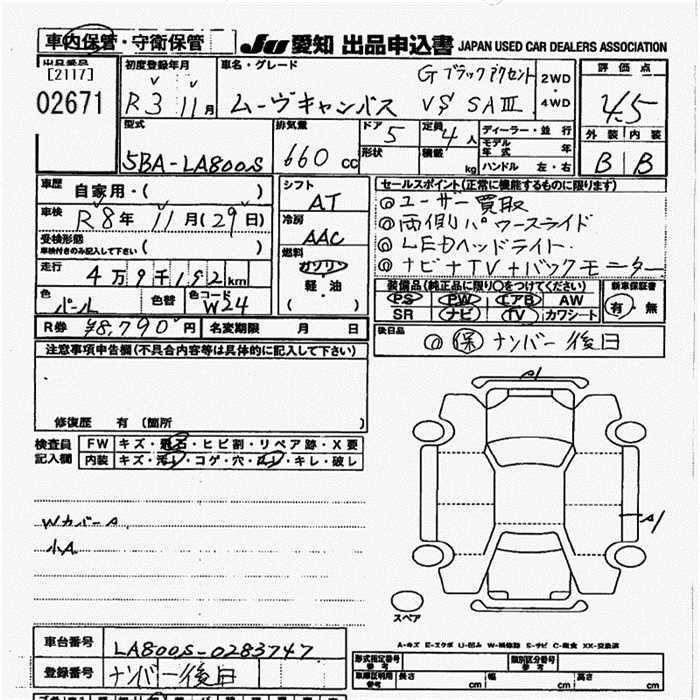 車内保管・守衛保管 JU 愛知 出品申込書 JAPAN USED CAR DEALERS ASSOCIATION
出品番号 [2117] 02671
初度登録年月 R3 11月
車名・グレード Gブラックアクセント
ムーヴキャンバス VS SAⅢ
2WD・4WD
評価点 4.5
外装 内装
B B
型式 5BA-LA800S
排気量 660cc
ドア 5
形状
定員 4人
積載 kg
ディーラー・並行
モデル年式 年
ハンドル 左・右
車歴 自家用・( )
車検 R8年 11月(29日)
受検形態 車検付きのみ記入して下さい ( )
走行 4万9千192km
色 パール 色替 色コード W24
R券 ¥8,790円 名変期限 月 日
シフト AT
冷房 AAC
燃料 ガソリン・軽・油 ( )
セールスポイント(正常に機能するものに限ります)
◎ユーザー買取
◎両側パワースライド
◎LEDヘッドライト
◎ナビ+TV+バックモニター
装備品(純正品に限り○をつけてください)
PS PW エアB AW
SR ナビ TV カワシート
新車保証書 有・無
後日品 ◎ 保 ナンバー後日
注意事項申告欄(不具合内容等は具体的に記入して下さい)
修復歴 有(箇所 )
検査員記入欄
FW キズ・飛石・ヒビ割・リペア跡・X要
内装 キズ・汚レ・コゲ・穴・キレ・破レ
WカバーA
小A
A1
A1
スペア
A-キズ E-エクボ U-凹み W-補修跡 S-サビ C-腐食 XX-交換済
車台番号 LA800S-0283747
登録番号 ナンバー後日
形式指定番号 参考
類別区分番号 参考
車庫証明用 参考 長さ cm 幅 cm 高さ cm